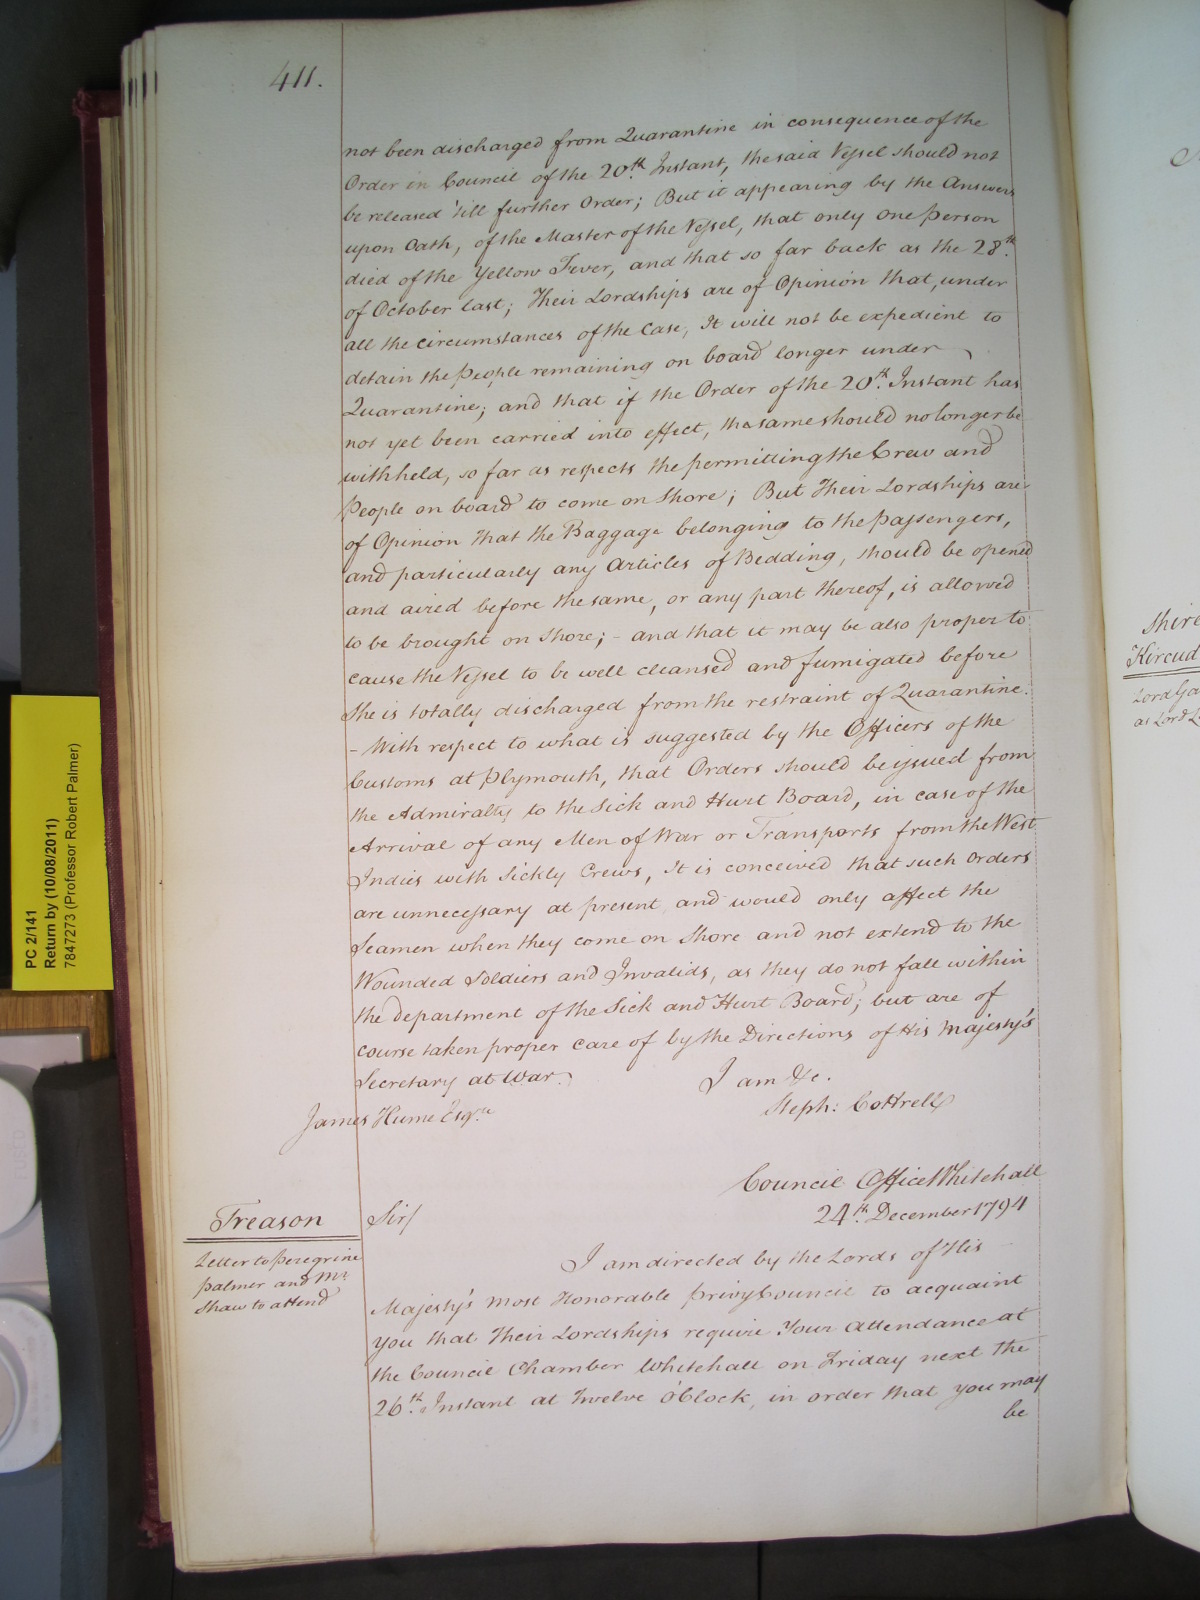 411.
not been discharged from Quarantine in consequence of the
Order in Council of the 20th. Instant, the said Vessel should not
be released 'till further Order; But it appearing by the Answers
upon Oath, of the Master of the Vessel, that only one Person
died of the Yellow Fever, and that so far back as the 28th.
of October last; Their Lordships are of Opinion that, under
all the circumstances of the Case, It will not be expedient to
detain the People remaining on board longer under
Quarantine; and that if the Order of the 20th. Instant has
not yet been carried into effect, the same should no longer be
withheld, so far as respects the permitting the Crew and
People on board to come on Shore; But Their Lordships are
of Opinion that the Baggage belonging to the Passengers,
and particularly any Articles of Bedding, should be opened
and aired before the same, or any part thereof, is allowed
to be brought on Shore; - and that it may be also proper to
cause the Vessel to be well cleansed and fumigated before
She is totally discharged from the restraint of Quarantine.
- With respect to what is suggested by the Officers of the
Customs at Plymouth, that Orders should be issued from
the Admiralty to the Sick and Hurt Board, in case of the
Arrival of any Men of War or Transports from the West
Indies with Sickly Crews, It is conceived that such Orders
are unnecessary at present and would only affect the
Seamen when they come on Shore and not extend to the
Wounded Soldiers and Invalids, as they do not fall within
the department of the Sick and Hurt Board; but are of
course taken proper care of by the Directions of His Majesty's
Secretary at War.
I am &c.
Steph: Cottrell
James Hume Esqre.
Council Office Whitehall
24th. December 1794
Treason
Letter to Peregrine
Palmer and Mr.
Shaw to attend
Sir/
I am directed by the Lords of His
Majesty's most Honorable Privy Council to acquaint
you that Their Lordships require Your attendance at
the Council Chamber Whitehall on Friday next the
26th. Instant at Twelve o'Clock, in order that you may
be
PC 2/141
Return by (10/08/2011)
7847273 (Professor Robert Palmer)
Shire
Kircud
Lord Ga
as Lord L